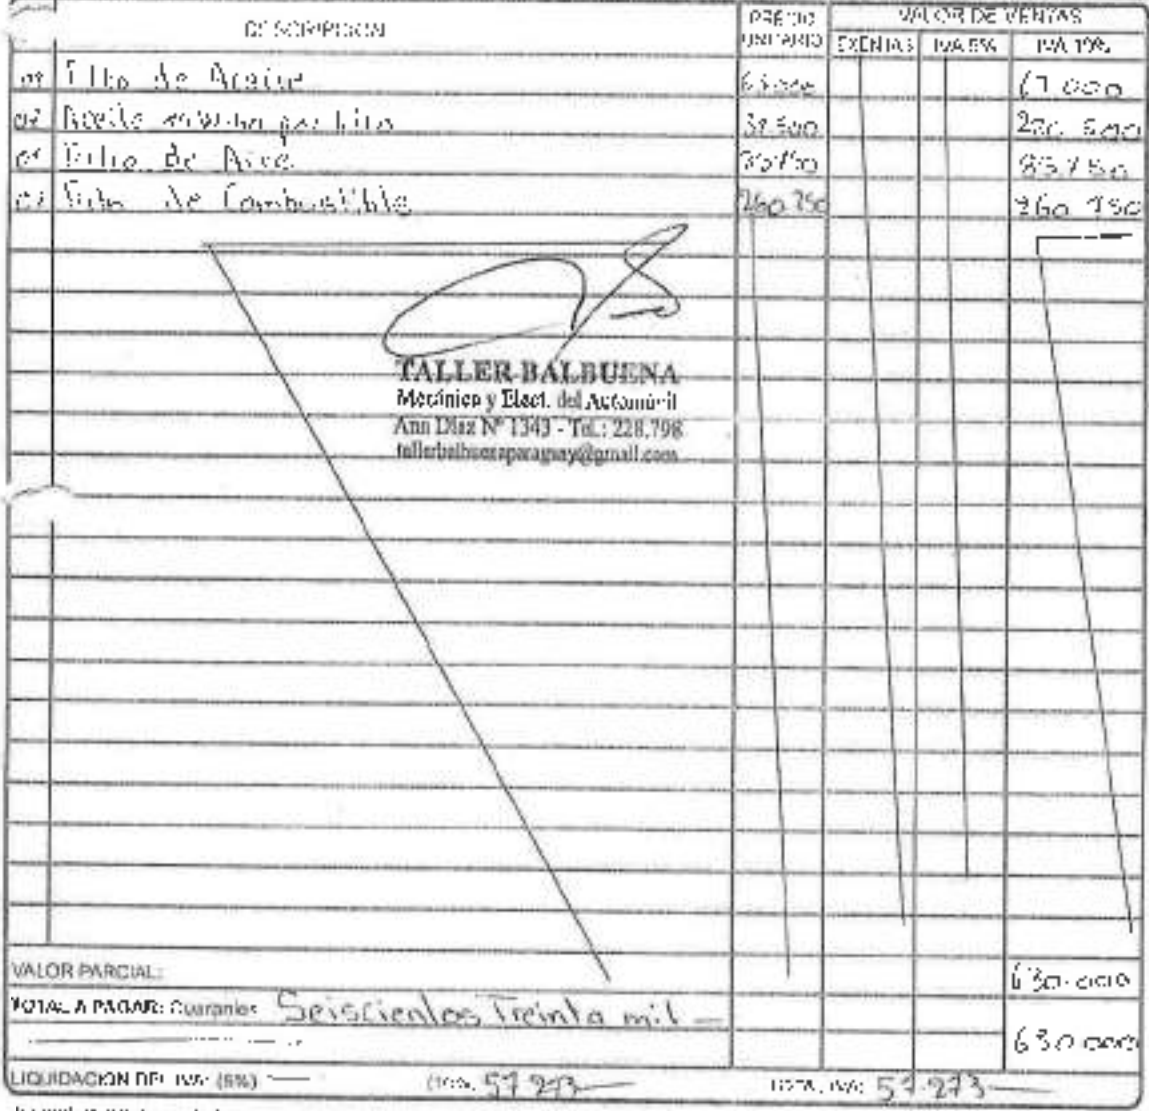 DESCRIPCION PRECIO UNITARIO VALOR DE VENTAS
EXENTAS IVA 5% IVA 10%
01 Filtro de Aceite 000
Aceite por Litro 31.500 500
01 Filtro de Aire 83.750
01 Filtro de Combustible 260.750 260.750
TALLER BALBUENA
Mecánica y Elect. del Automóvil
Ana Díaz Nº 1343 - Tel.: 228.798
tallerbalbuenaparaguay@gmail.com
VALOR PARCIAL: 630.000
TOTAL A PAGAR: Guaraníes Seiscientos Treinta mil — 630.000
LIQUIDACION DEL IVA: (5%) — (10%) 57.273 — TOTAL IVA: 57.273 —